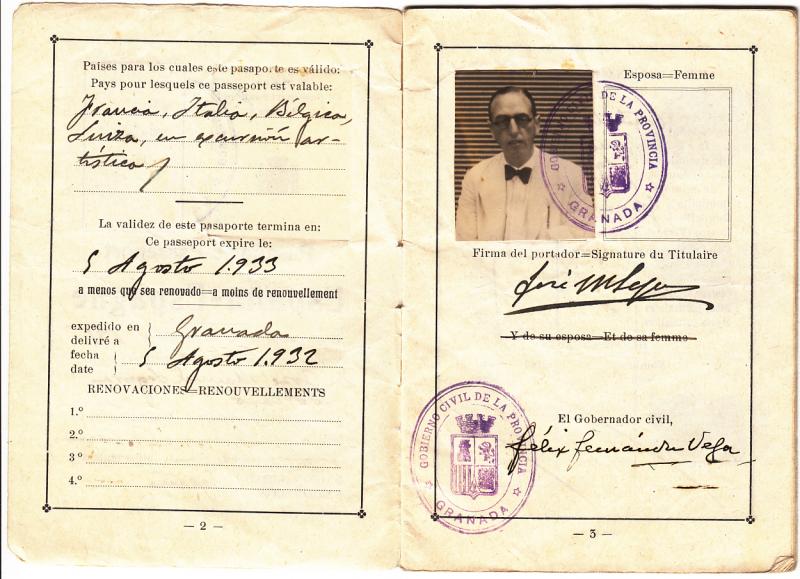 Países para los cuales este pasaporte es válido:
Pays pour lesquels ce passeport est valable:
Francia, Italia, Bélgica,
Suiza, en excursión ar-
tística
La validez de este pasaporte termina en:
Ce passeport expire le:
5 Agosto 1.933
a menos que sea renovado=a moins de renouvellement
expedido en
delivré a
Granada
fecha
date
5 Agosto 1.932
RENOVACIONES=RENOUVELLEMENTS
1.º
2.º
3º
4.º
— 2 —
Esposa=Femme
GOBIERNO CIVIL DE LA PROVINCIA
GRANADA
Firma del portador=Signature du Titulaire
José M
Y de su esposa=Et de sa femme
GOBIERNO CIVIL DE LA PROVINCIA
GRANADA
El Gobernador civil,
Félix Fernández Vega
— 3 —